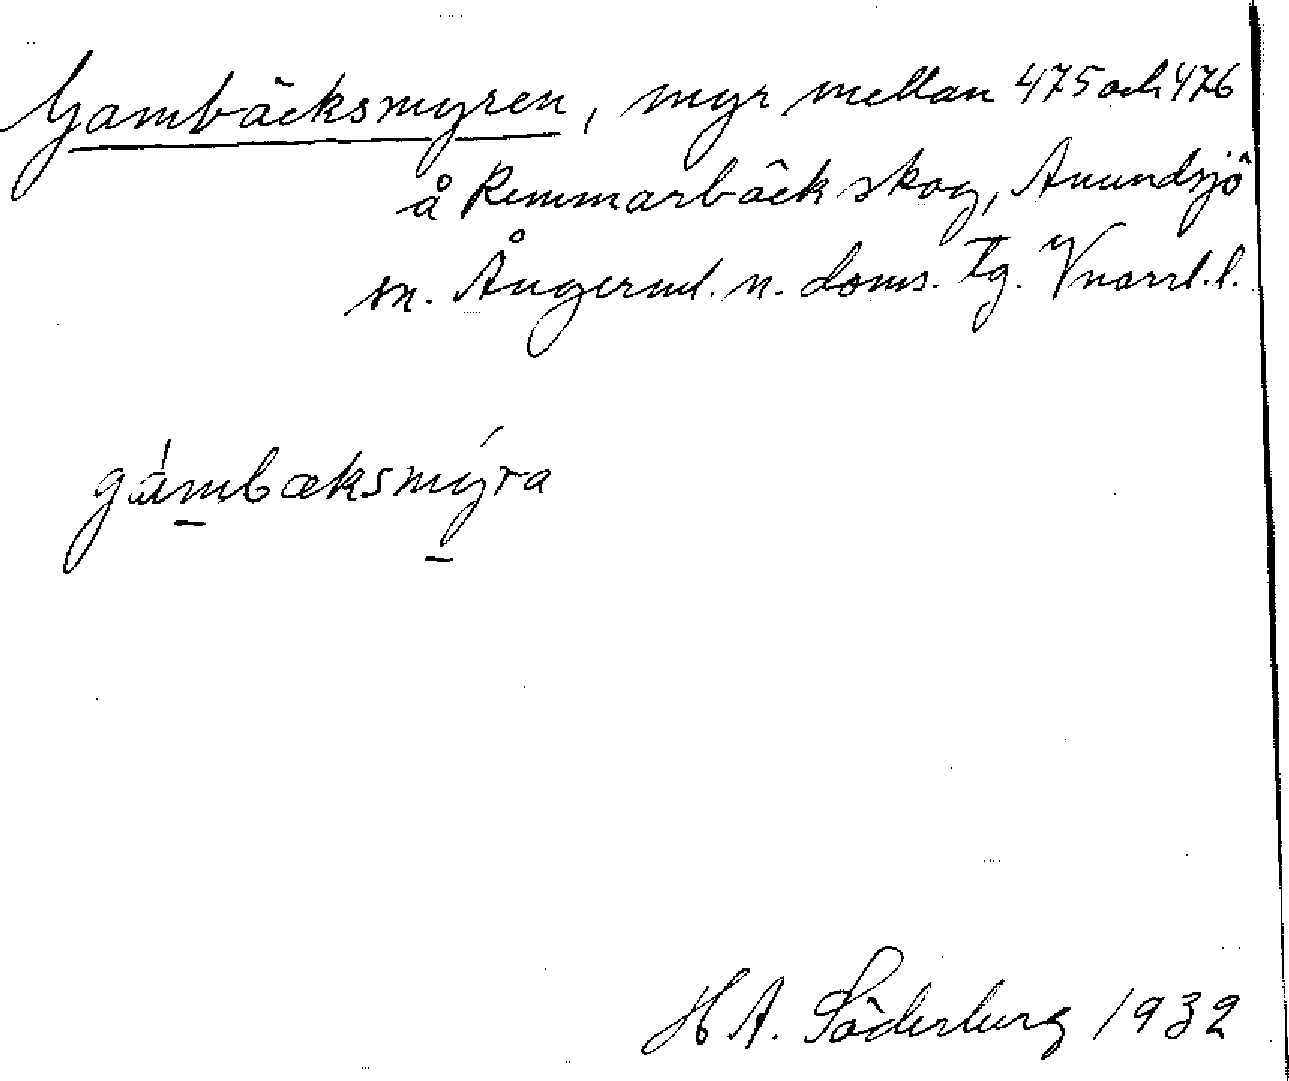 Gambäcksmyren, myr mellan 475 och 476
å Remmarbäck skog, Anundsjö
sn. Ångerml. n. doms. tg. Vnorrl. l.
gámbæksmýra
H A. Söderberg 1932